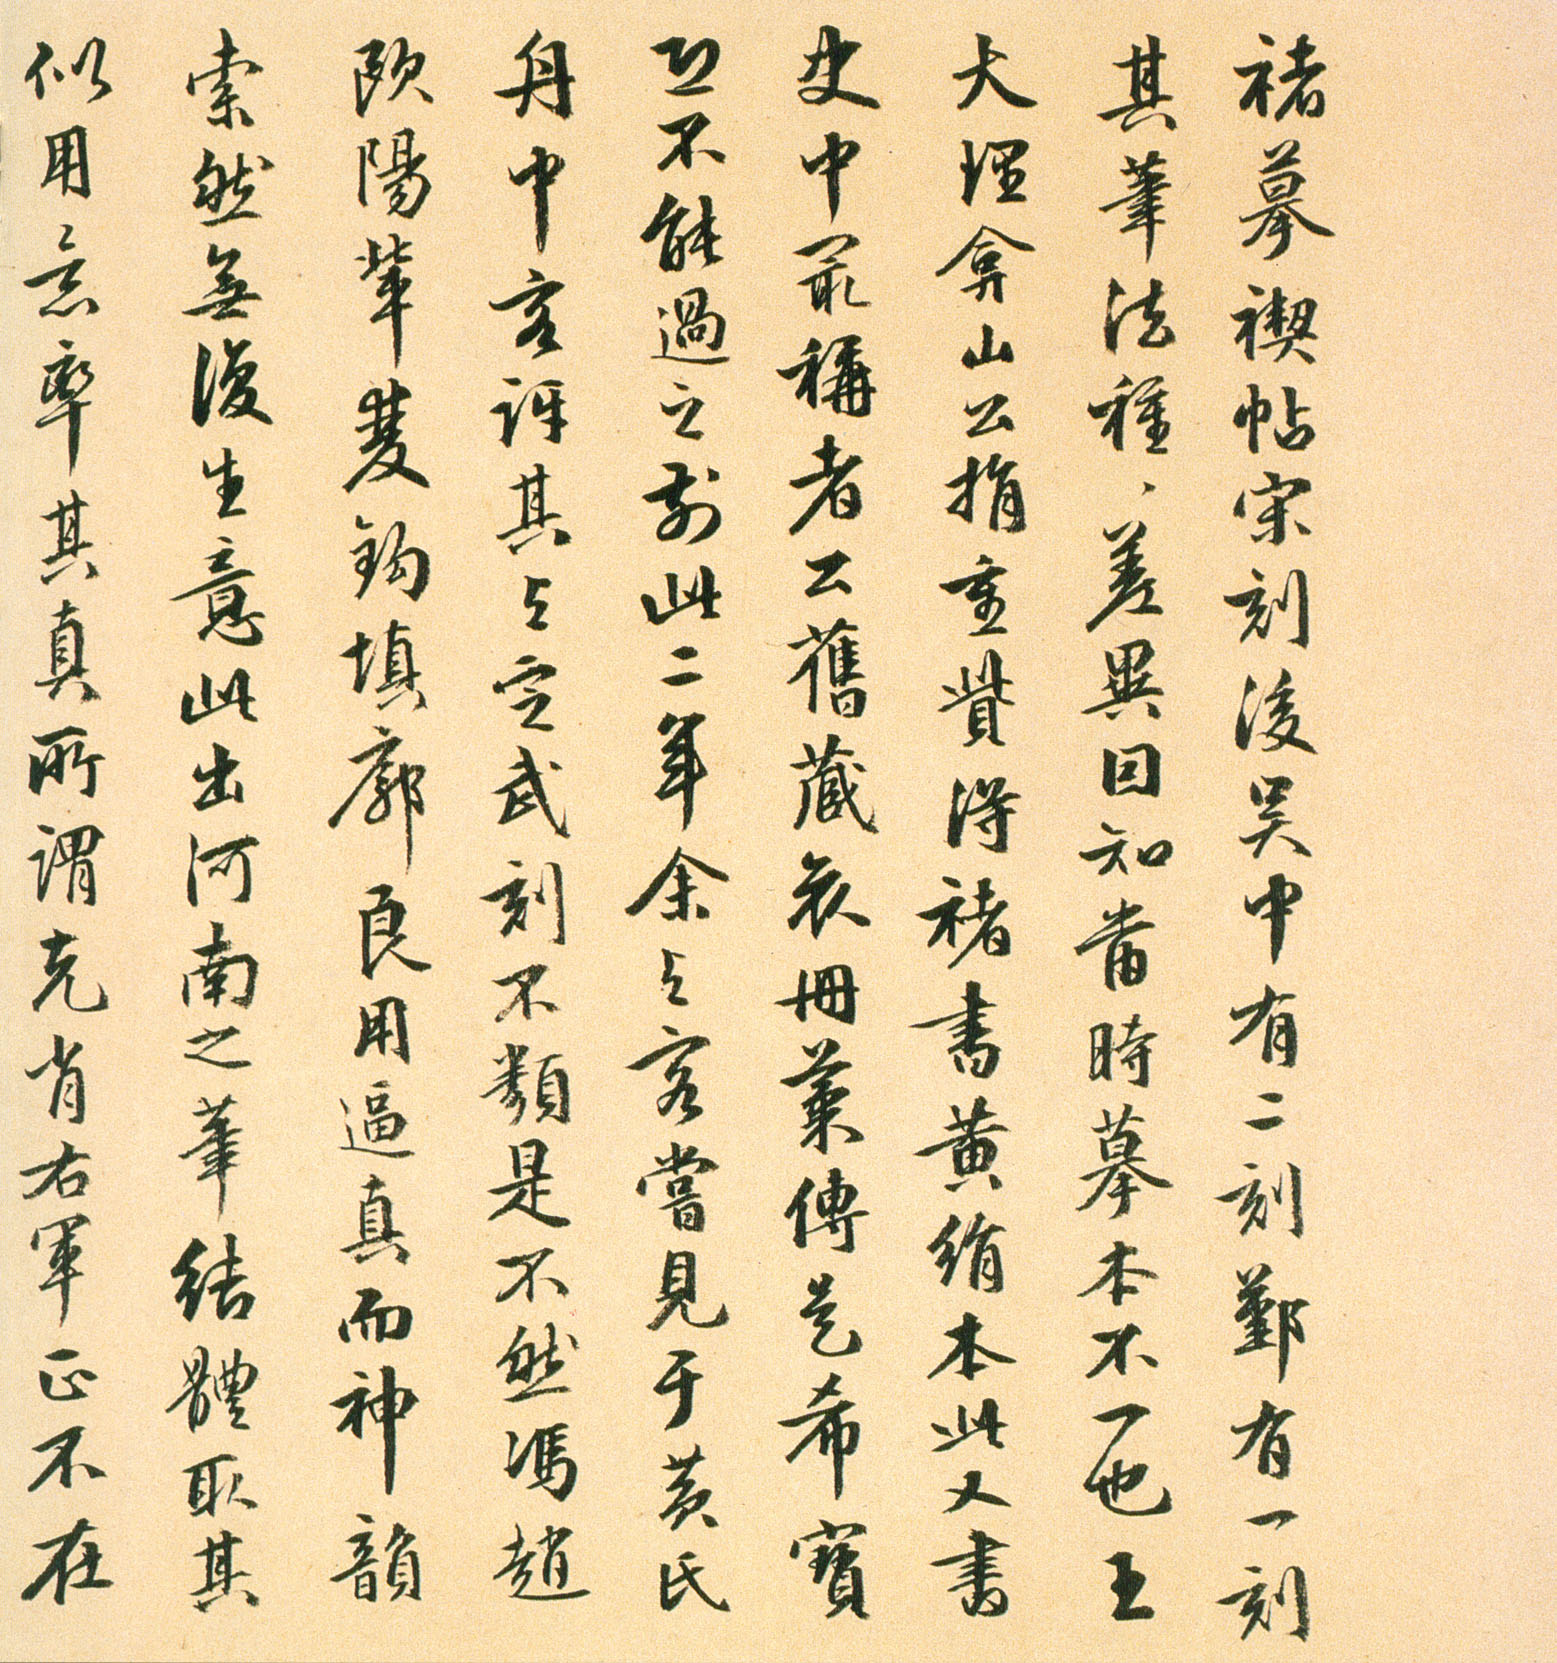 褚摹禊帖宋刻後吳中有二刻鄞有一刻
其筆法種、差異因知當時摹本不一也王
大理弇山公捐重貲得褚書黃絹本此又書
史中最稱者公舊藏褧冊葉傳是希寶
恐不能過之前此二年余與客嘗見于黃氏
舟中客訝其與定武刻不類是不然馮趙
歐陽輩雙鈎填廓良用逼真而神韻
索然無復生意此出河南之筆結體取其
似用意率其真所謂克肖右軍正不在